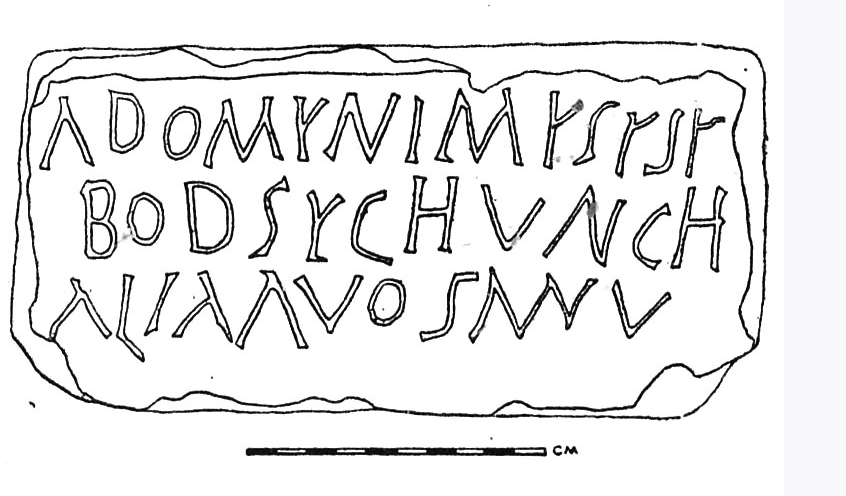 ADOMYNIMYSYSY
BODSYCHVNCH
ALIAAVOSANV
CM